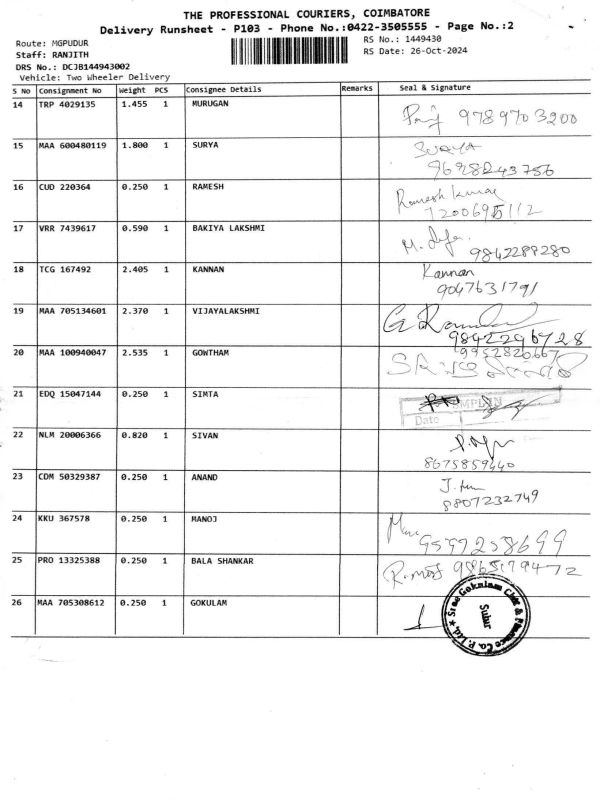 THE PROFESSIONAL COURIERS, COIMBATORE
Delivery Runsheet - P103 - Phone No.:0422-3505555 - Page No.:2
Route: MGPUDUR
RS No.: 1449430
Staff: RANJITH
RS Date: 26-Oct-2024
DRS No.: DCJB144943002
Vehicle: Two Wheeler Delivery
S No Consignment No Weight PCS Consignee Details Remarks Seal & Signature
14 TRP 4029135 1.455 1 MURUGAN
9789703200
15 MAA 600480119 1.800 1 SURYA SURYA
9698243756
16 CUD 220364 0.250 1 RAMESH Ramesh kumar
7200695112
17 VRR 7439617 0.590 1 BAKIYA LAKSHMI
9842289280
18 TCG 167492 2.405 1 KANNAN Kannan
9047631791
19 MAA 705134601 2.370 1 VIJAYALAKSHMI
9842296728
20 MAA 100940047 2.535 1 GOWTHAM 9952820667
21 EDQ 15047144 0.250 1 SIMTA
Date
22 NLM 20006366 0.820 1 SIVAN
8675859440
23 CDM 50329387 0.250 1 ANAND
8807232749
24 KKU 367578 0.250 1 MANOJ
9597258699
25 PRO 13325388 0.250 1 BALA SHANKAR 9865179472
26 MAA 705308612 0.250 1 GOKULAM
Sree Gokulam Chit & Finance Co. P. Ltd.,
Sulur